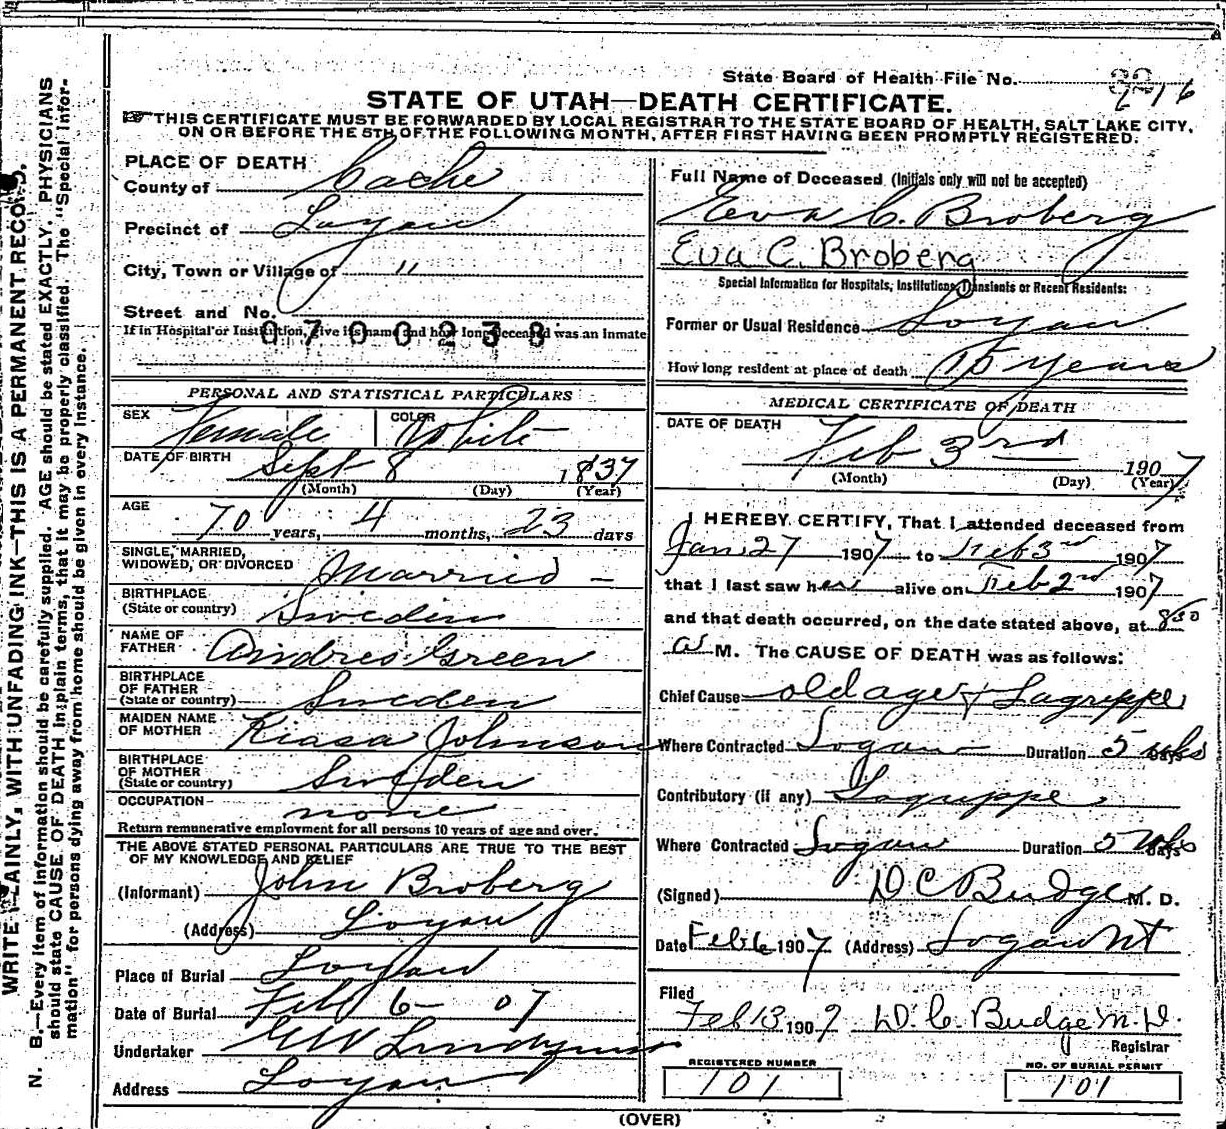 State Board of Health File No.
STATE OF UTAH—DEATH CERTIFICATE.
THIS CERTIFICATE MUST BE FORWARDED BY LOCAL REGISTRAR TO THE STATE BOARD OF HEALTH, SALT LAKE CITY,
ON OR BEFORE THE 5TH OF THE FOLLOWING MONTH, AFTER FIRST HAVING BEEN PROMPTLY REGISTERED.
PLACE OF DEATH
County of Cache
Precinct of Logan
City, Town or Village of "
Street and No.
0700238
If in Hospital or Institution, give its name and how long deceased was an Inmate
PERSONAL AND STATISTICAL PARTICULARS
SEX Female COLOR White
DATE OF BIRTH Sept 8 1837
(Month) (Day) (Year)
AGE 70 years, 4 months, 23 days
SINGLE, MARRIED,
WIDOWED, OR DIVORCED Married
BIRTHPLACE
(State or country) Sweden
NAME OF
FATHER Andres Green
BIRTHPLACE
OF FATHER
(State or country) Sweden
MAIDEN NAME
OF MOTHER Kiasa Johnson
BIRTHPLACE
OF MOTHER
(State or country) Sweden
OCCUPATION none
Return remunerative employment for all persons 10 years of age and over.
THE ABOVE STATED PERSONAL PARTICULARS ARE TRUE TO THE BEST
OF MY KNOWLEDGE AND BELIEF
(Informant) John Broberg
(Address) Logan
Place of Burial Logan
Date of Burial Feb 6 - 07
Undertaker
Address Logan
Full Name of Deceased (Initials only will not be accepted)
Eeva C. Broberg
Eva C. Broberg
Special Information for Hospitals, Institutions, Transients or Recent Residents:
Former or Usual Residence Logan
How long resident at place of death 15 years
MEDICAL CERTIFICATE OF DEATH
DATE OF DEATH
Feb 3rd 1907
(Month) (Day) (Year)
I HEREBY CERTIFY, That I attended deceased from
Jan. 27 1907 to Feb 3rd 1907
that I last saw her alive on Feb 2nd 1907
and that death occurred, on the date stated above, at 8 30
a M. The CAUSE OF DEATH was as follows:
Chief Cause old age & Lagrippe
Where Contracted Logan Duration 5 wks Days
Contributory (if any) Lagrippe
Where Contracted Logan Duration 5 wks Days
(Signed) D C Budge M. D.
Date Feb 6 1907 (Address) Logan Ut
Filed
Feb 13 1907 D. C. Budge M. D.
Registrar
REGISTERED NUMBER
101
NO. OF BURIAL PERMIT
101
(OVER)
WRITE PLAINLY, WITH UNFADING INK—THIS IS A PERMANENT RECORD.
N. B.—Every item of information should be carefully supplied. AGE should be stated EXACTLY. PHYSICIANS
should state CAUSE OF DEATH in plain terms, that it may be properly classified. The "Special Infor-
mation" for persons dying away from home should be given in every instance.